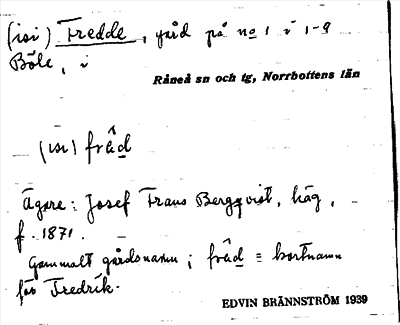 (isi) Fredde, gård på no 1 i 1-9
Böle, i
Råneå sn och tg, Norrbottens län
(isi) frâd
Ägare: Josef Frans Bergqvist, häg,
f. 1871.
Gammalt gårdsnamn; frâd = kortnamn
för Fredrik.
EDVIN BRÄNNSTRÖM 1939